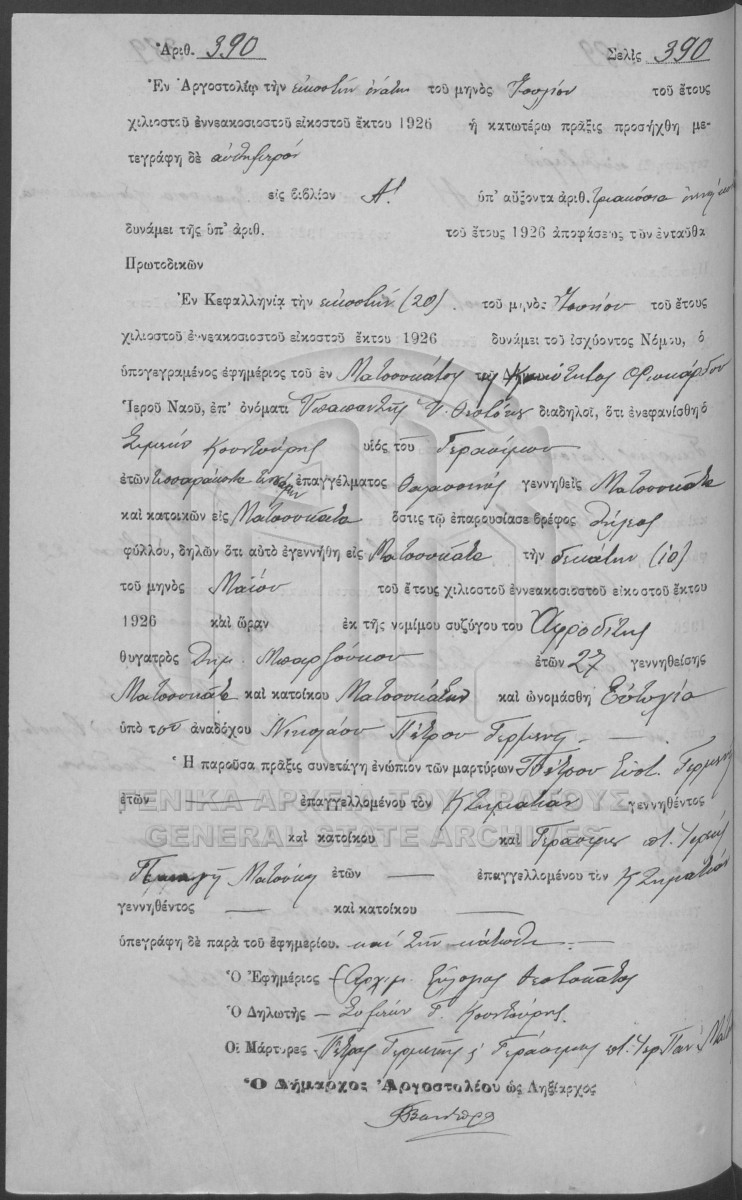 Ἀριθ. 390 Σελὶς 390
Ἐν Ἀργοστολίῳ τὴν εἰκοστὴν ἐνάτην τοῦ μηνὸς Ἰουλίου τοῦ ἔτους
χιλιοστοῦ ἐννεακοσιοστοῦ εἰκοστοῦ ἕκτου 1926 ἡ κατωτέρω πρᾶξις προσήχθη με-
τεγράφη δὲ αὐθημερόν
εἰς βιβλίον Α! ὑπ' αὔξοντα ἀριθ. τριακόσια
δυνάμει τῆς ὑπ' ἀριθ. τοῦ ἔτους 1926 ἀποφάσεως τῶν ἐνταῦθα
Πρωτοδικῶν
Ἐν Κεφαλληνίᾳ τὴν εἰκοστὴν (20) τοῦ μηνὸς Ἰουνίου τοῦ ἔτους
χιλιοστοῦ ἐννεακοσιοστοῦ εἰκοστοῦ ἕκτου 1926 δυνάμει τοῦ ἰσχύοντος Νόμου, ὁ
ὑπογεγραμένος ἐφημέριος τοῦ ἐν Ματσουκάτοις τῆς Κοινότητος Φισκάρδου
Ἱεροῦ Ναοῦ, ἐπ' ὀνόματι Ὑπαπαντῆς διαδηλοῖ, ὅτι ἐνεφανίσθη ὁ
Συμεὼν Κουντούρης υἱὸς τοῦ Γερασίμου
ἐτῶν τεσσαράκοντα ἐπαγγέλματος γεννηθεὶς Ματσουκάτα
καὶ κατοικῶν εἰς Ματσουκάτα ὅστις τῷ ἐπαρουσίασε βρέφος θήλεος
φύλλου, δηλῶν ὅτι αὐτὸ ἐγεννήθη εἰς Ματσουκάτα τὴν δεκάτην (10)
τοῦ μηνὸς Μαΐου τοῦ ἔτους χιλιοστοῦ ἐννεακοσιοστοῦ εἰκοστοῦ ἕκτου
1926 καὶ ὥραν ἐκ τῆς νομίμου συζύγου του Ἀφροδίτης
θυγατρὸς Δημ. ἐτῶν 27 γεννηθείσης
Ματσουκάτα καὶ κατοίκου Ματσουκάτων καὶ ὠνομάσθη Εὐτυχία
ὑπὸ τοῦ ἀναδόχου Νικολάου Πέτρου Γερμενῆ
Ἡ παροῦσα πρᾶξις συνετάγη ἐνώπιον τῶν μαρτύρων Πέτρου Εὐστ. Γερμενῆ
ἐτῶν — ἐπαγγελλομένου τὸν Κτηματίαν γεννηθέντος
καὶ κατοίκου καὶ Γερασίμου
Ματσούκη ἐτῶν — ἐπαγγελλομένου τὸν Κτηματίαν
γεννηθέντος — καὶ κατοίκου —
ὑπεγράφη δὲ παρὰ τοῦ ἐφημερίου. καὶ τῶν κάτωθι
Ὁ Ἐφημέριος – Ἀρχιμ. Εὐλόγιος Θεοτοκάτος
Ὁ Δηλωτὴς – Συμεὼν Γ. Κουντούρης
Οἱ Μάρτυρες – Πέτρος Γερμενῆς Γεράσιμος
Ὁ Δήμαρχος Ἀργοστολίου ὡς Ληξίαρχος
ΓΕΝΙΚΑ ΑΡΧΕΙΑ ΤΟΥ ΚΡΑΤΟΥΣ
GENERAL STATE ARCHIVES